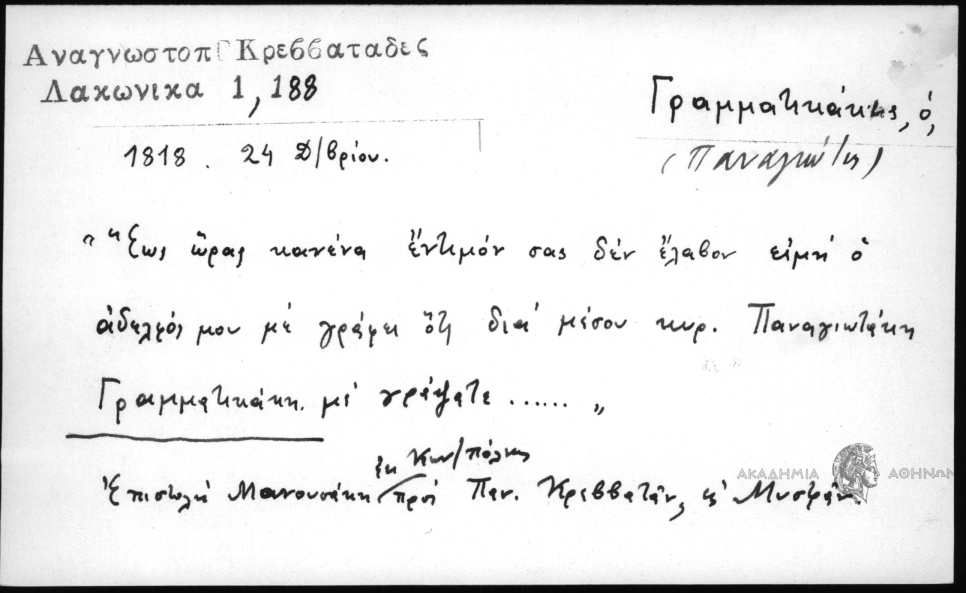 Αναγνωστοπ Κρεββαταδες
Λακωνικα 1, 188
Γραμματικάκης, ὁ,
(Παναγιώτης)
1818. 24 Δ/βρίου.
"Ἕως ὥρας κανένα ἔντιμόν σας δέν ἔλαβον εἰμή ὁ
ἀδελφός μου μέ γράφει ὅτι διά μέσου κυρ. Παναγιωτάκη
Γραμματικάκη μέ γράψατε ......"
ἐκ Κων/πόλεως
Ἐπιστολή Μανουσάκη πρός Παν. Κρεββατᾶν, εἰς Μυστρᾶν.
ΑΚΑΔΗΜΙΑ ΑΘΗΝΩΝ